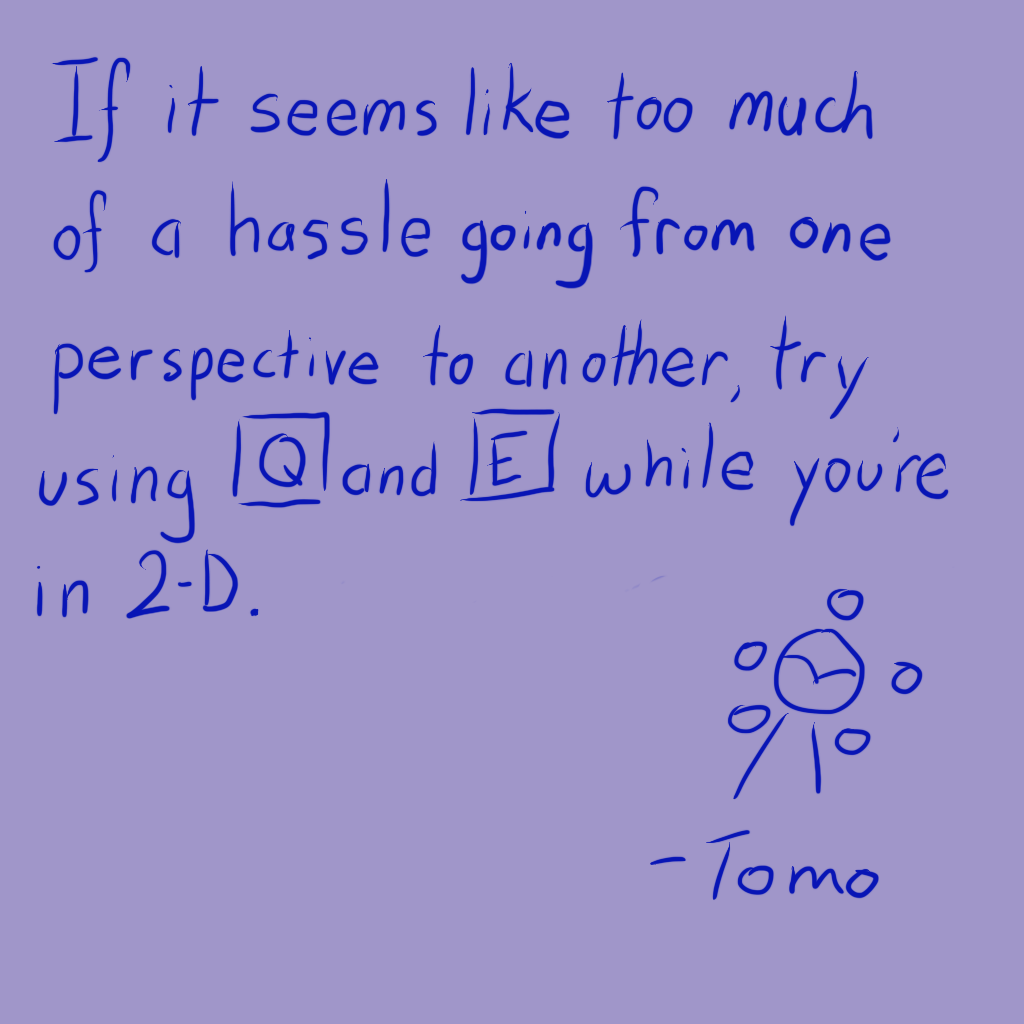 If it seems like too much
of a hassle going from one
perspective to another, try
using Q and E while you're
in 2-D.
-Tomo